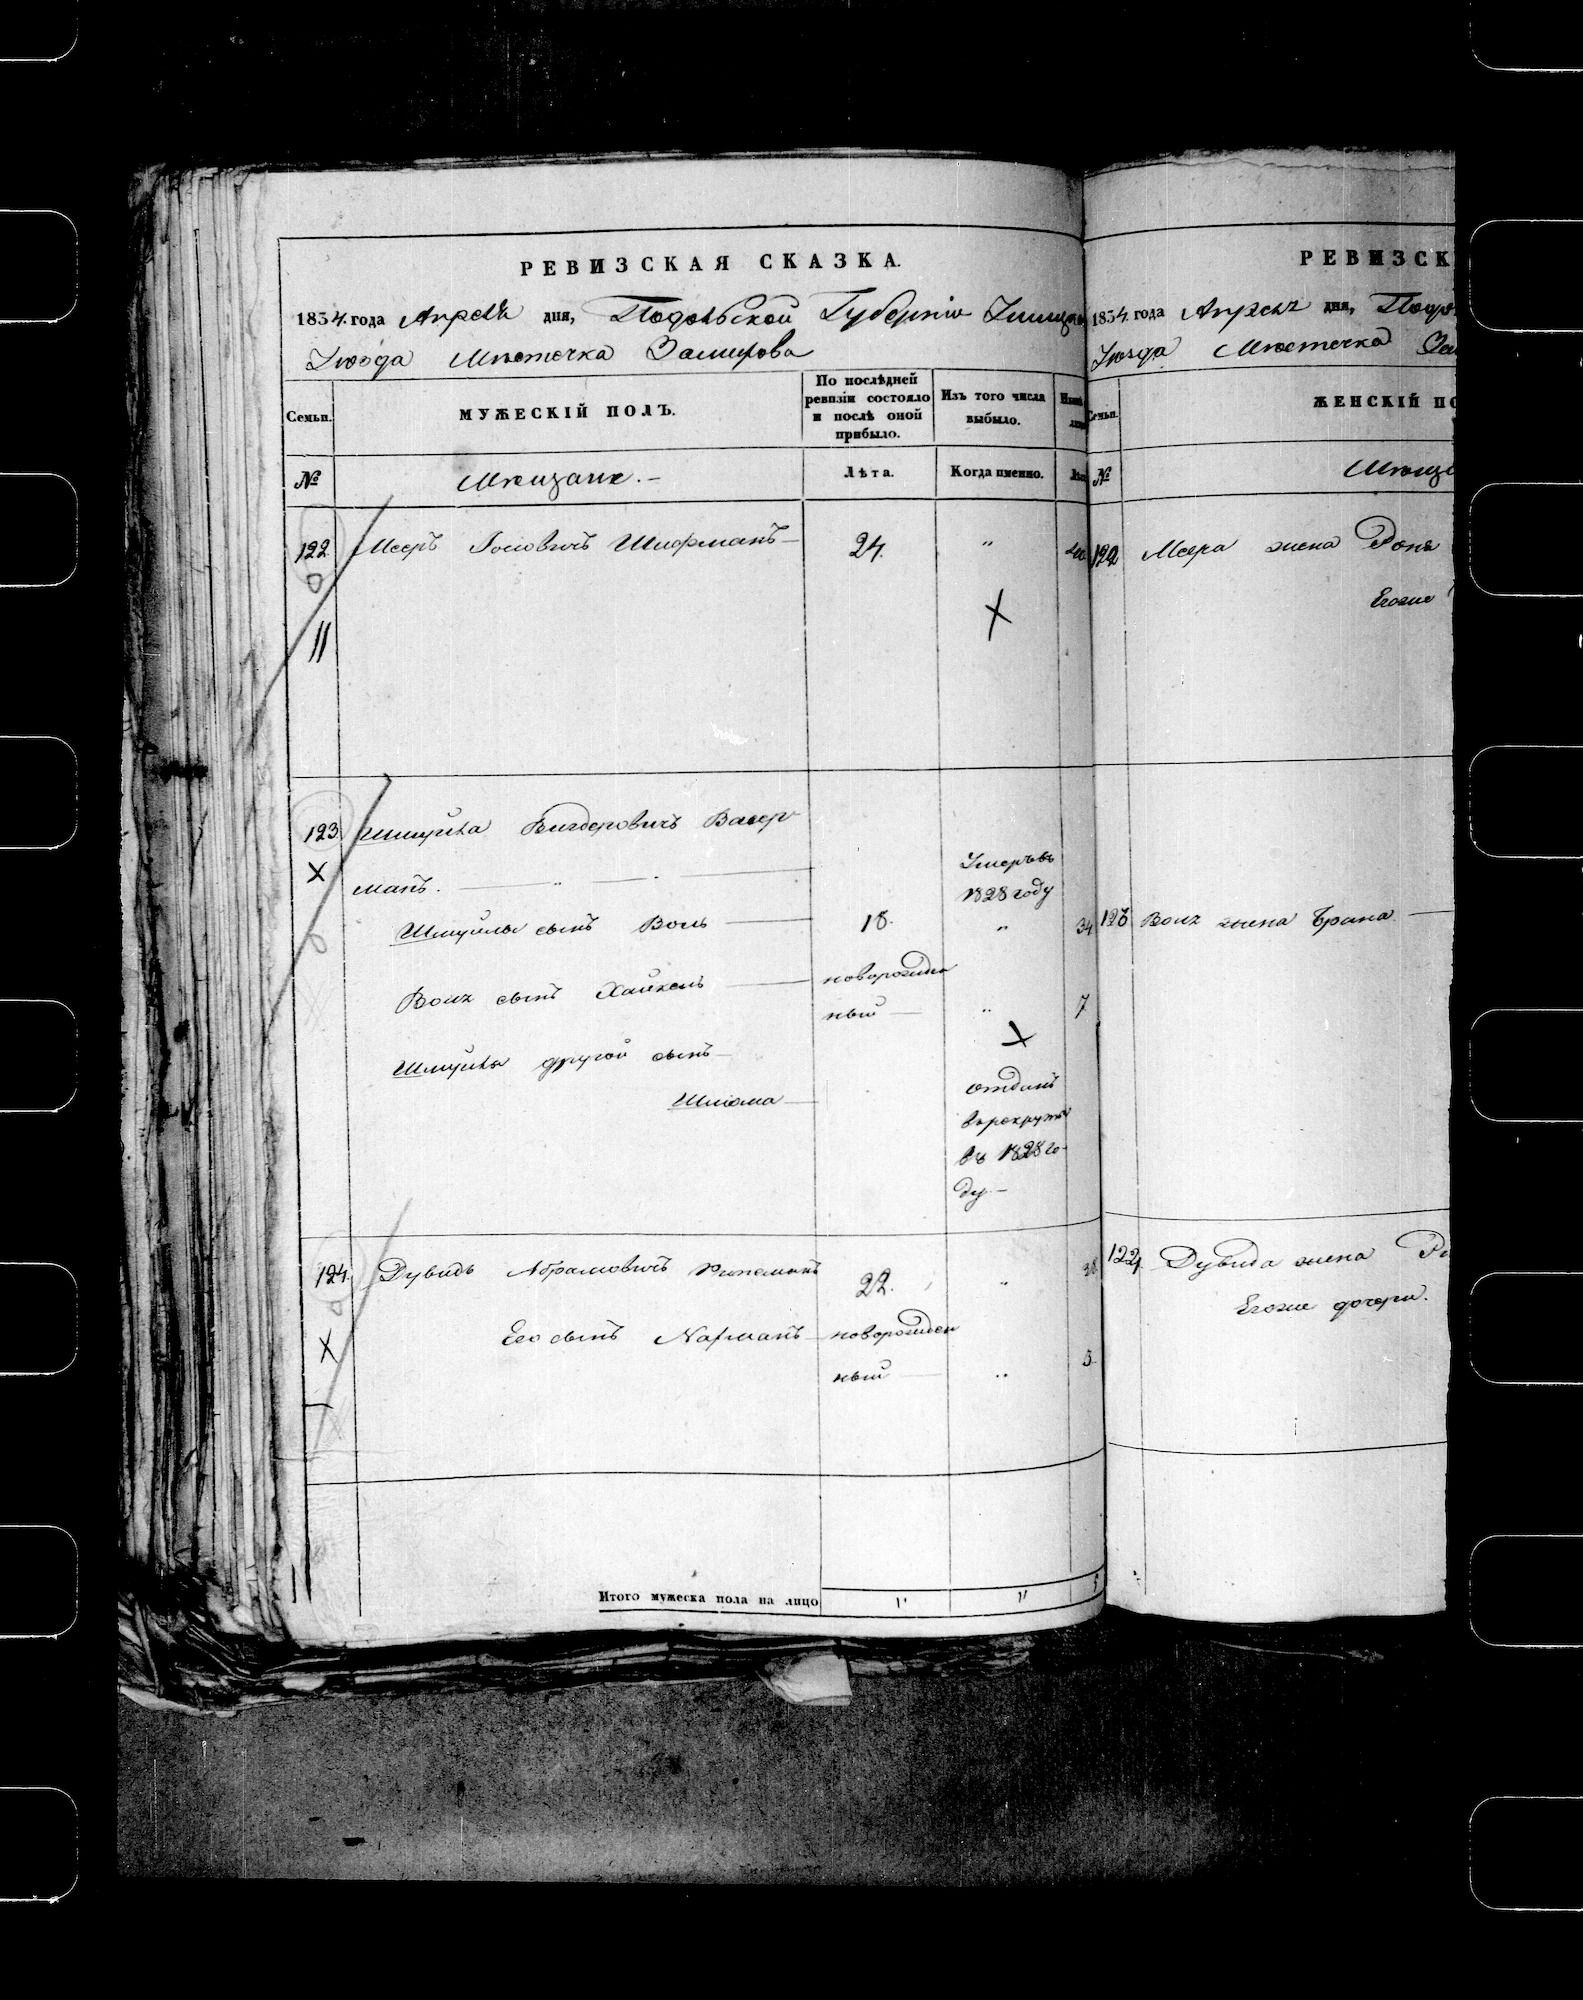 РЕВИЗСКАЯ СКАЗКА.
1834. года Апреля дня, Подольской Губерніи
Уезда Местечка Замирова
Семьи.
МУЖЕСКІЙ ПОЛЪ.
По послѣдней ревизіи состояло и послѣ оной прибыло.
Изъ того числа выбыло.
№
Мещане. –
Лѣта.
Когда именно.
122 Мееръ Іосіовичъ Шпорманъ 24. "
11
X
123 Шмуйла Вигдоровичъ Васер
манъ.
Умеръ въ
1828 году
Шмуйлы сынъ Воль 18. " 34
Вольх сынъ Хайкель новорожден
ный " 7
X
Шмуйлы другой сынъ
Шлома
отданъ
в рекруты
въ 1828 го-
ду –
124. Дувидъ Абрамовичъ 22. "
Его сынъ Нахманъ новорожден
ный " 5
X
Итого мужеска пола на лицо " "
РЕВИЗСК
1834. года Апреля дня,
Уезда Местечка
Семьи.
ЖЕНСКІЙ ПО
№
122 Меера жена
Егоже
123 Вольх жена Брана
124 Дувида жена
Егоже дочери.